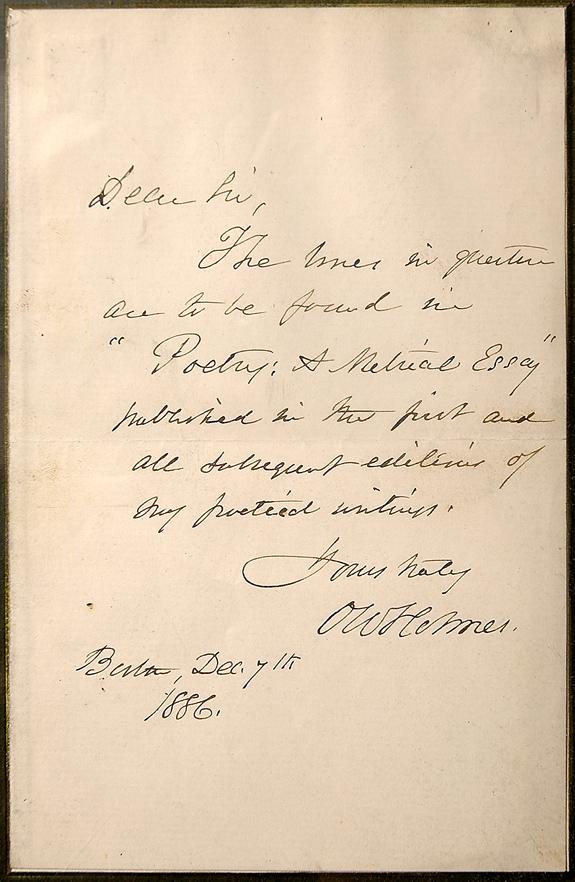 Dear Sir,
The lines in question
are to be found in
" Poetry: A Metrical Essay"
published in the first and
all subsequent editions of
my poetical writings.
Yours truly
O W Holmes.
Boston, Dec. 7th
1886.